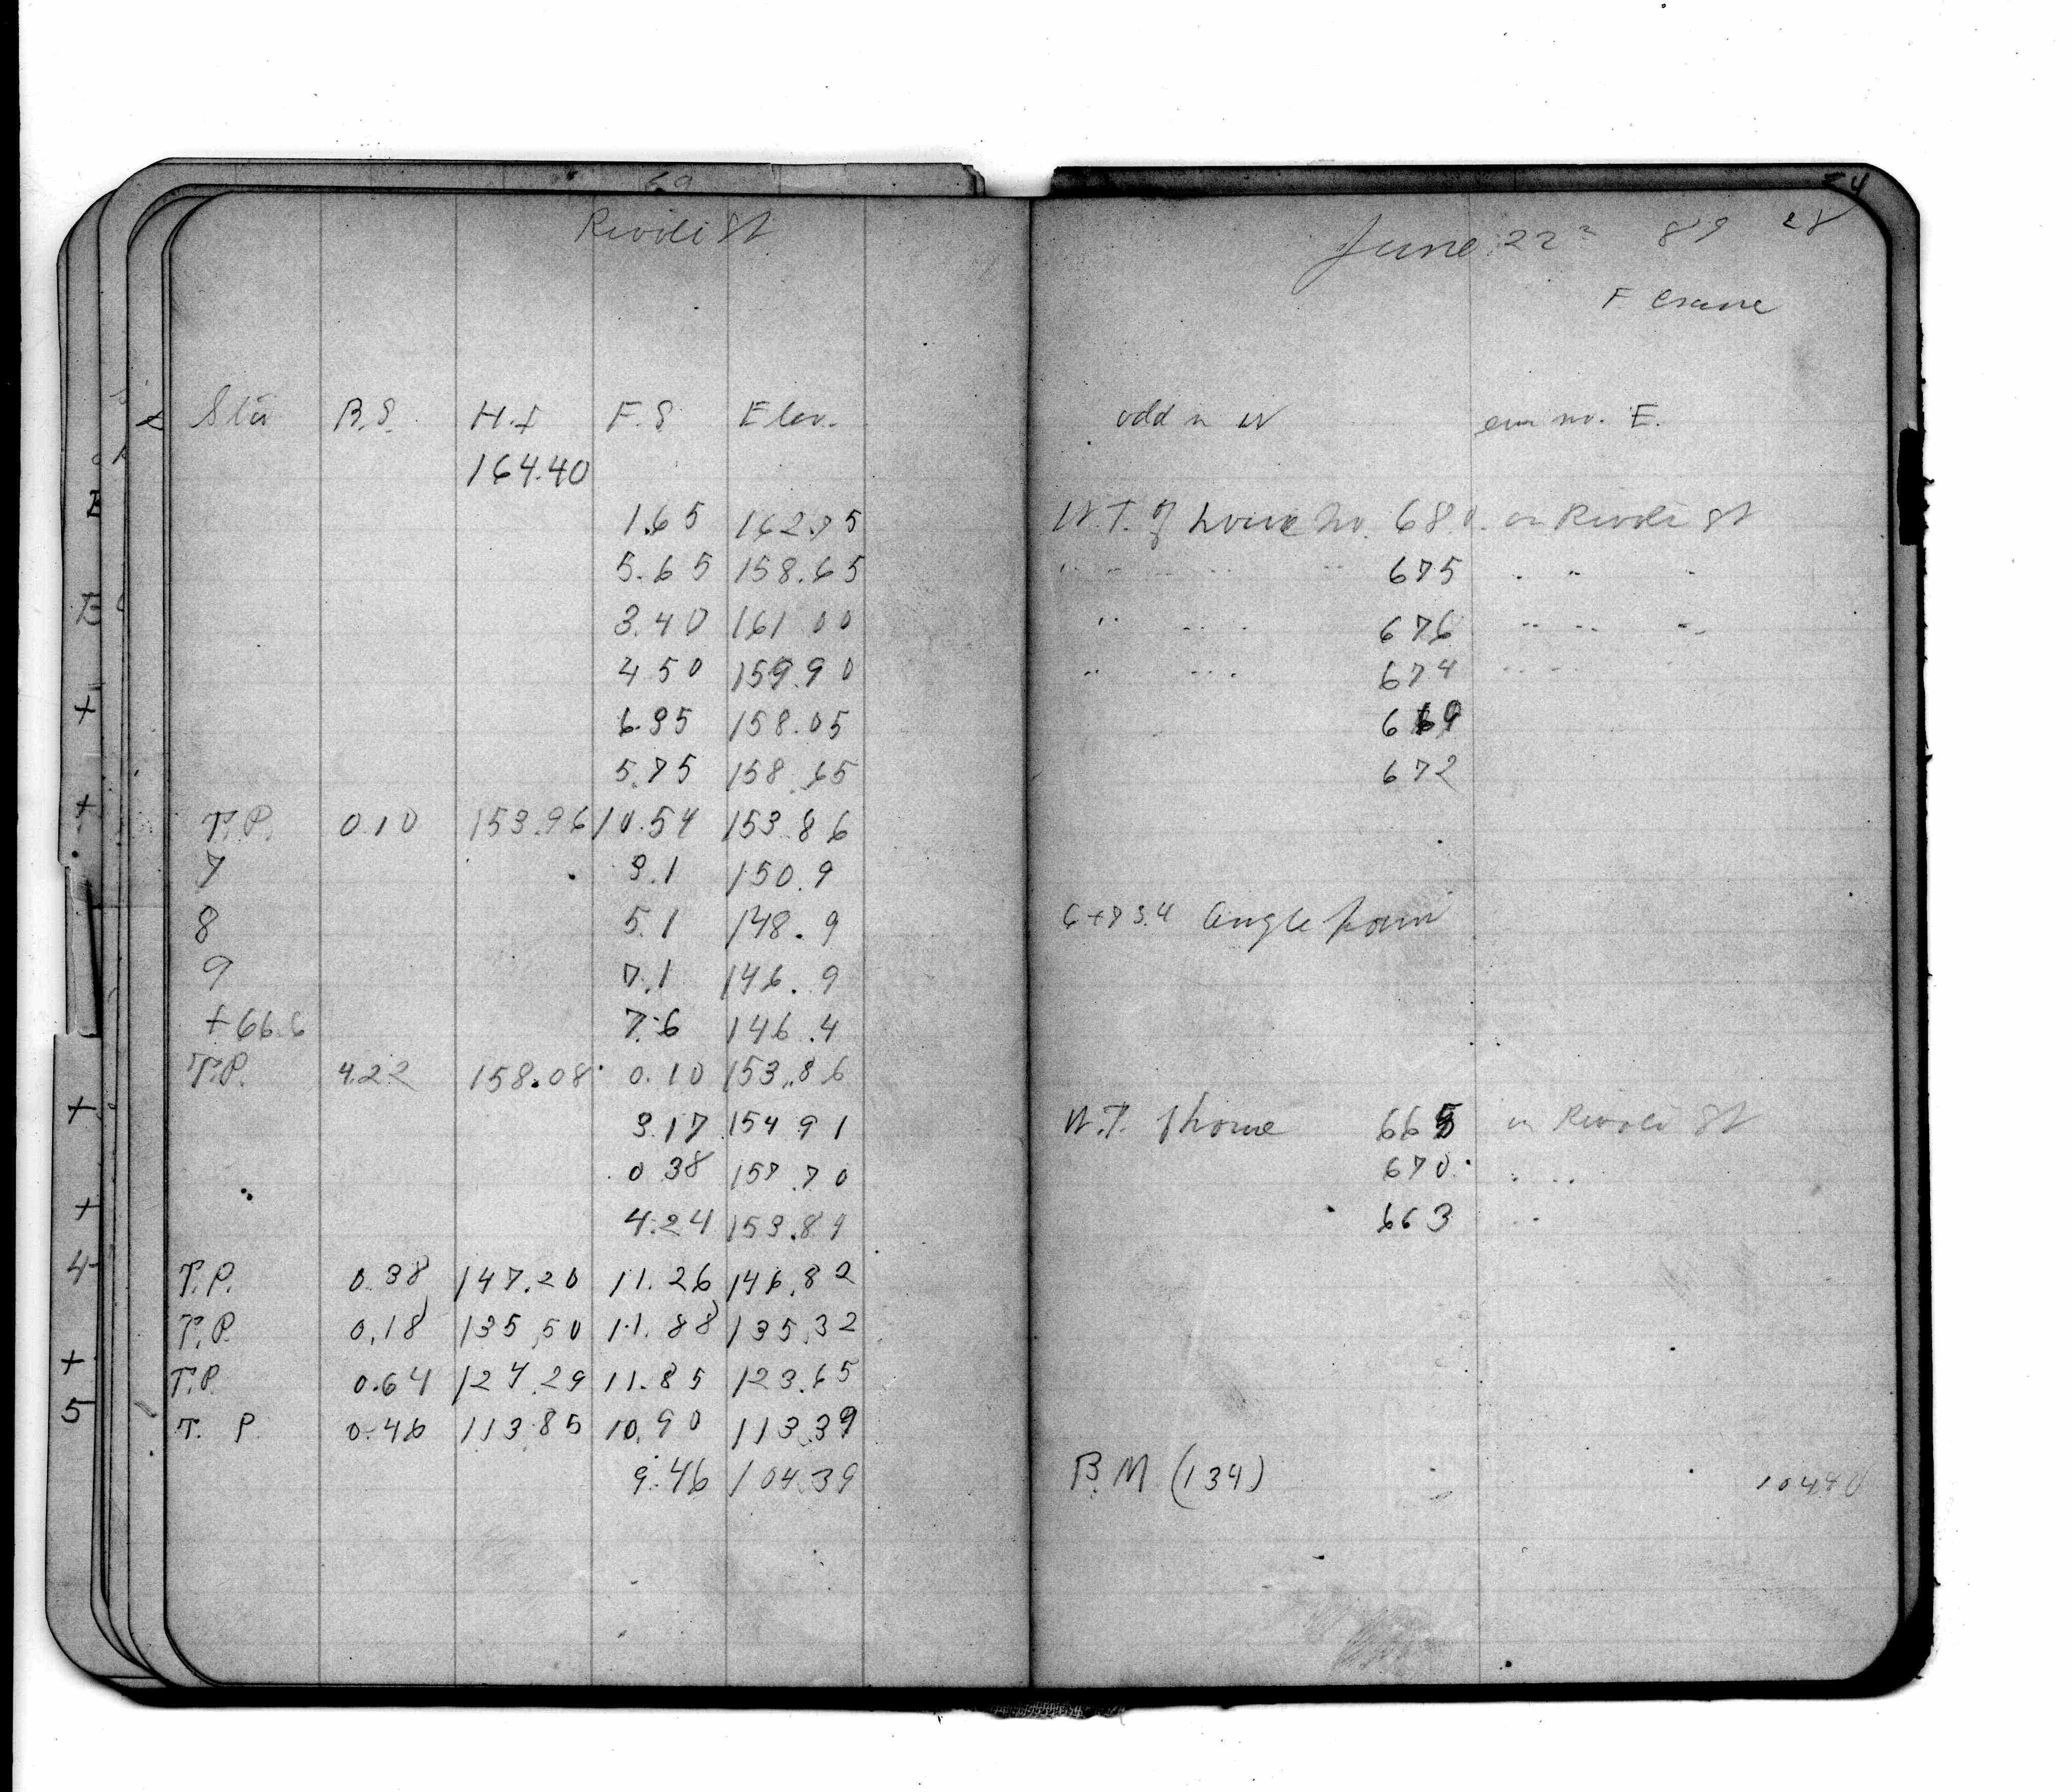 Rivoli St
Sta B.S. H.I F.S Elev.
164.40
1.65 162.75
5.65 158.65
3.40 161 00
4 50 159.90
6.35 158.05
5.75 158.65
T.P. 0.10 153.96 10.54 153.86
7 3.1 150.9
8 5.1 148.9
9 7.1 146.9
+66.6 7.6 146.4
T.P. 4.22 158.08 0.10 153.86
3.17 154 91
0 38 157.70
4.24 153.84
T.P. 0.38 147.20 11.26 146.82
T.P. 0.18 135.50 11.88 135.32
T.P. 0.64 124.29 11.85 123.65
T. P. 0.46 113.85 10.90 113.39
9.46 104.39
June 22 89 28
F. Crane
odd n W even no. E.
W.T. of house No. 680. on Rivoli St
" " 675 " " "
" " 676 " " "
" " 674 " "
669
672
6+73.4 Angle point
W.T. of house 665 on Rivoli St
670 " "
663 "
B.M (134) 104.40
+
+
+
+
4
+
5